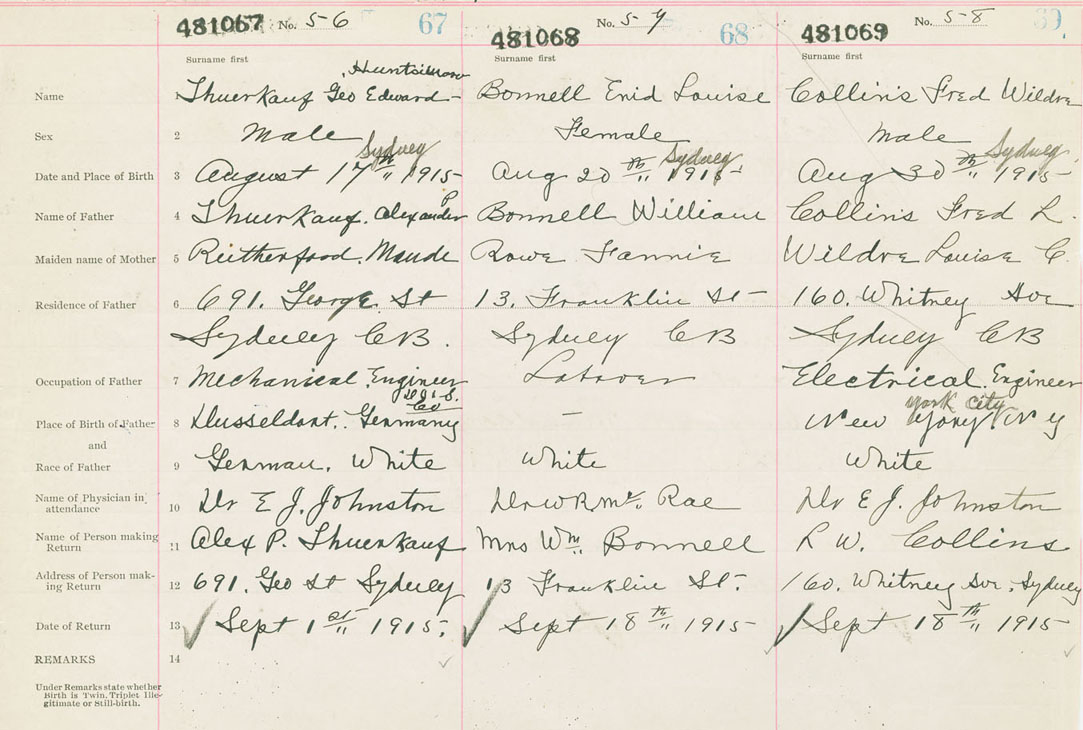 481067 No. 5-6 67 481068 No. 5-7 68 481069 No. 5-8
Surname first Surname first Surname first
Name 1 Thuerkauf Geo Edward Bonnell Enid Louise Collins Fred Wildre
Sex 2 Male Female Male
Sydney Sydney Sydney
Date and Place of Birth 3 August 17th 1915 Aug 20th 1915 Aug 30th 1915
Name of Father 4 Thuerkauf. Alexander P Bonnell William Collins Fred L.
Maiden name of Mother 5 Rutherford. Maude Rowe Fannie Wildre Louise C.
Residence of Father 6 691. George St 13. Franklin St 160. Whitney Ave
Sydney CB. Sydney CB Sydney CB
Occupation of Father 7 Mechanical Engineer Labourer Electrical Engineer
York City
Place of Birth of Father 8 Dusseldorf. Germany — New York N Y
and
Race of Father 9 German. White White White
Name of Physician in attendance 10 Dr E J. Johnston Dr W R Mc Rae Dr E J. Johnston
Name of Person making Return 11 Alex P. Thuerkauf Mrs Wm Bonnell L W. Collins
Address of Person making Return 12 691. Geo St Sydney 13 Franklin St. 160. Whitney Ave. Sydney
Date of Return 13 Sept 1st 1915. Sept 18th 1915 Sept 18th 1915
REMARKS 14
Under Remarks state whether
Birth is Twin, Triplet Ille-
gitimate or Still-birth.